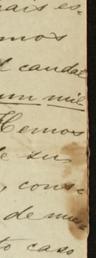 ais es-
emos
l caudal
un mil
Hemos
e su
, cons-
de mu
to caso